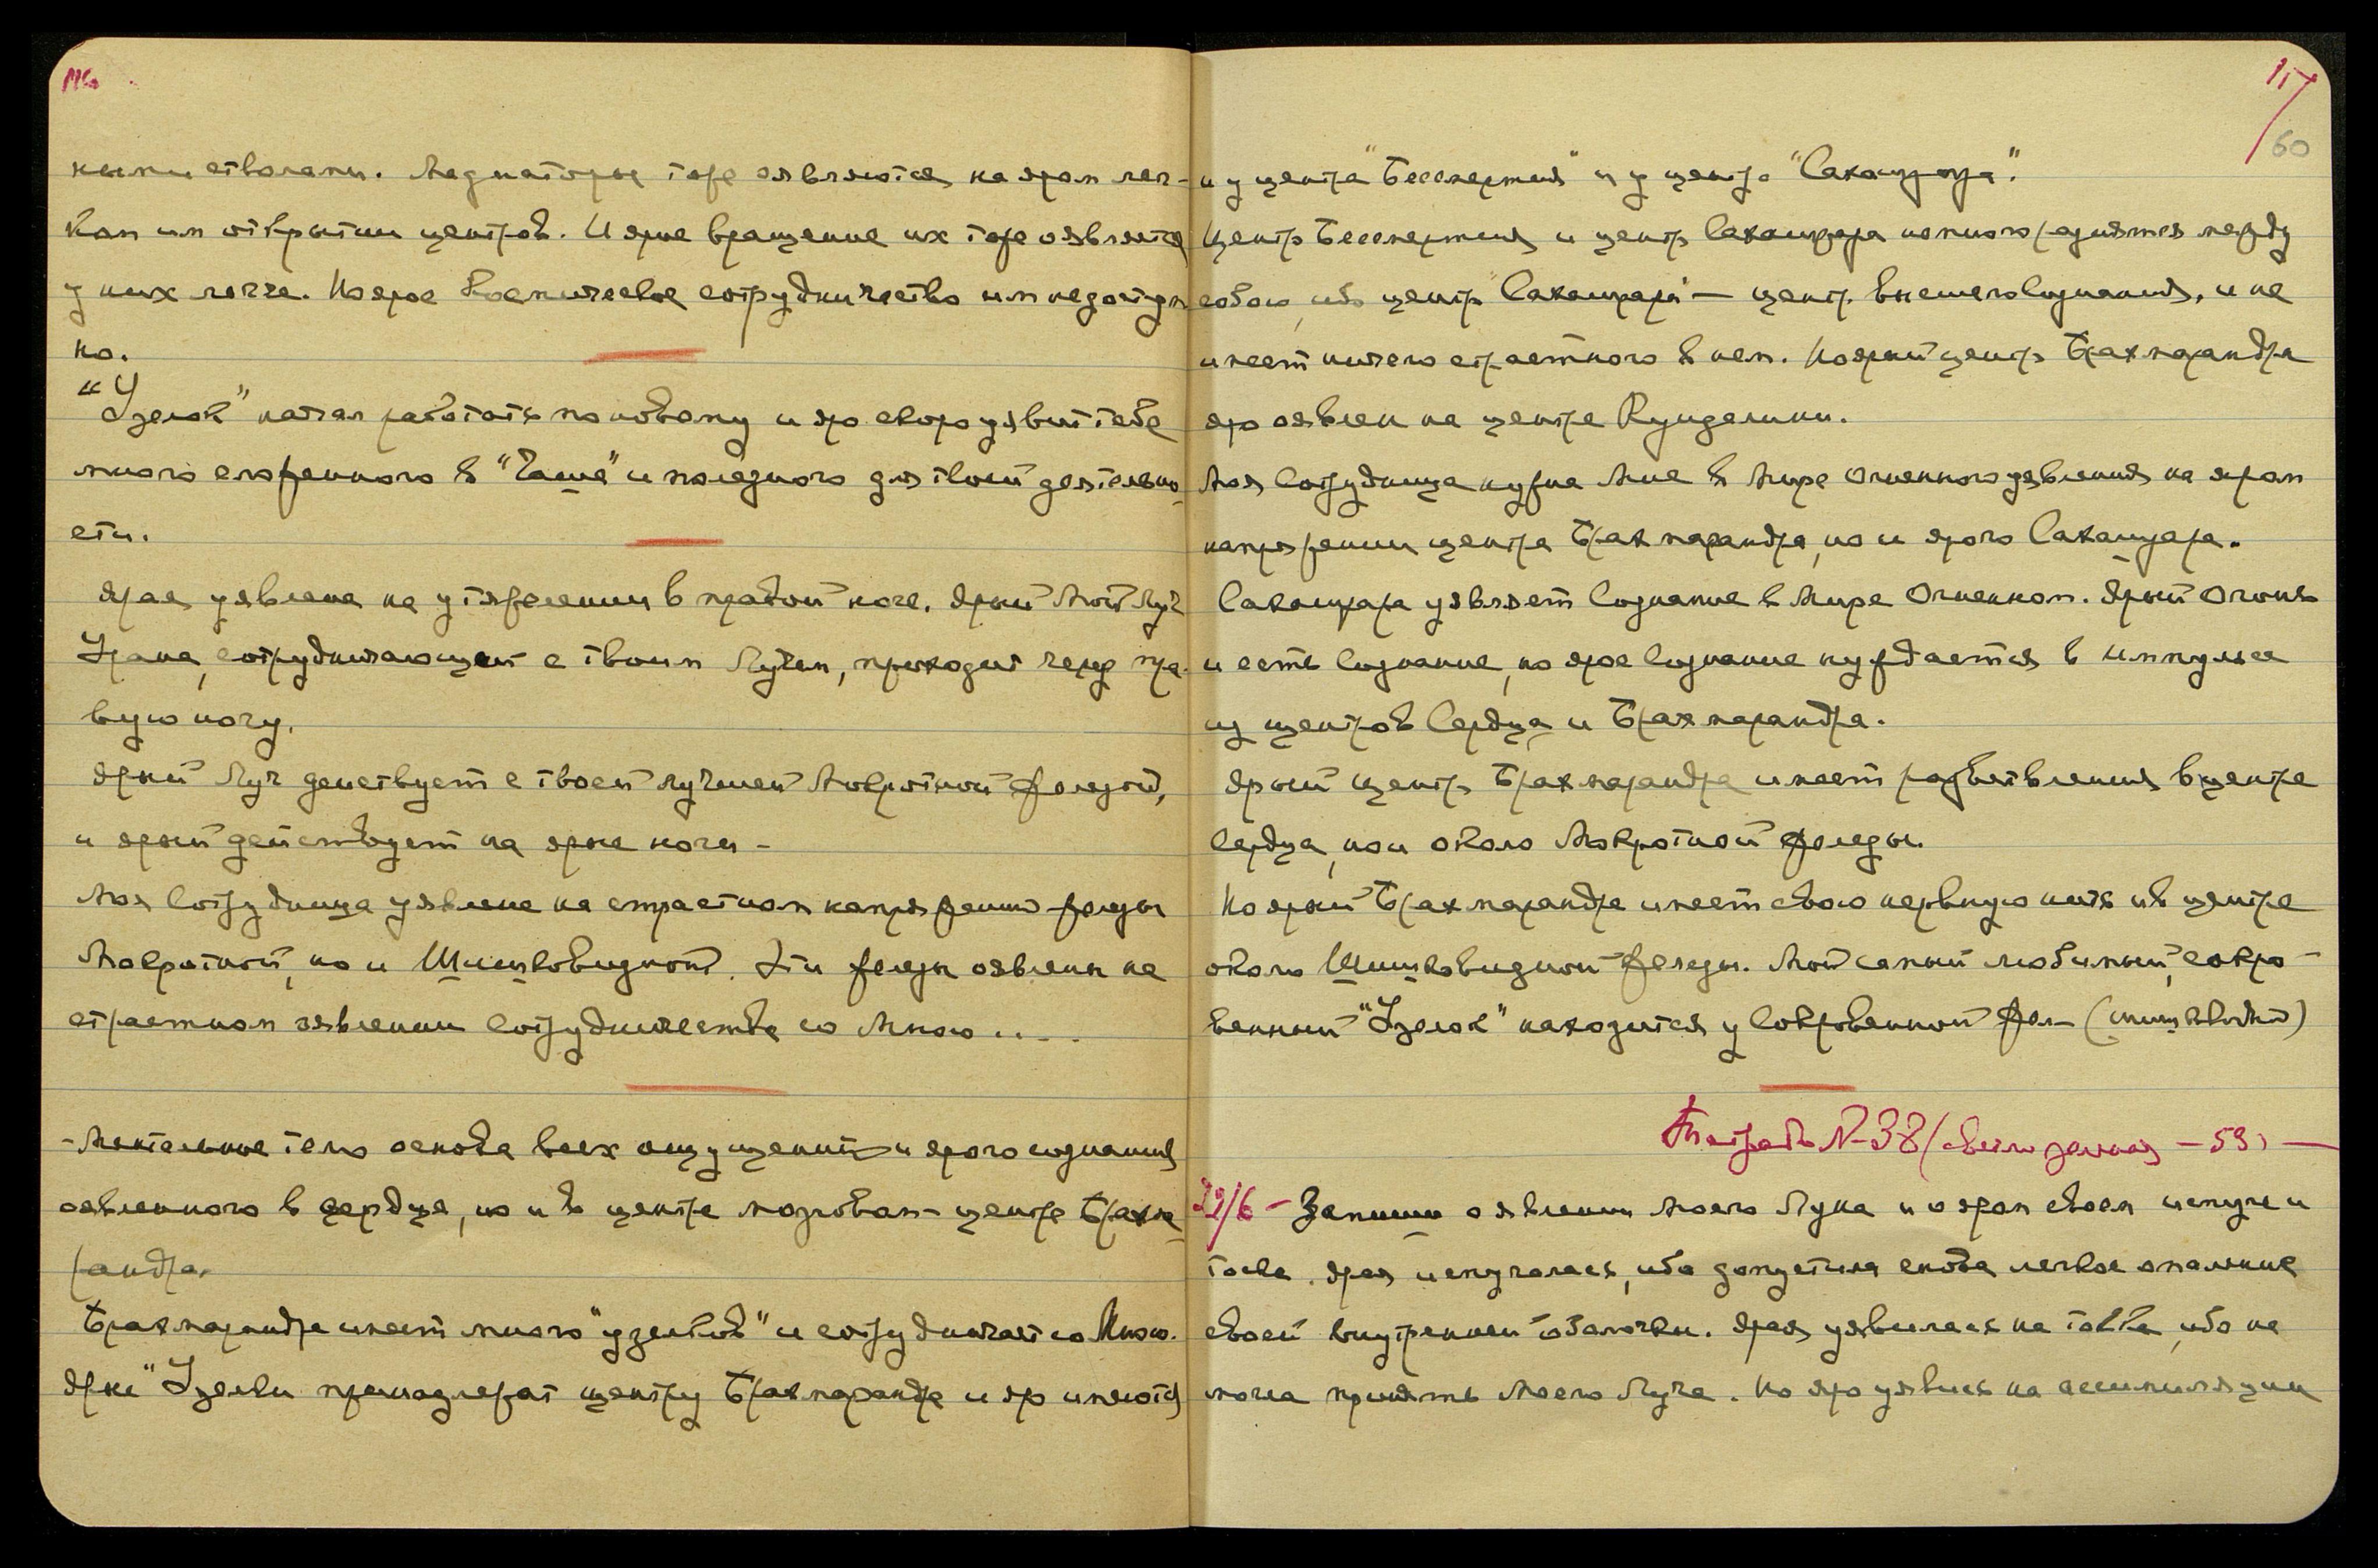 116
ными стволами. Медиаторы тоже являются на яром лег-
ком им открытии центров. И ярое вращение их тоже оявляется
у них легче. Но ярое Космическое сотрудничество им недоступ-
но.
"Узелок" начал работать по новому и яро скоро уявит тебе
много сложенного в "Чаше" и полезного для твоей деятельно-
сти.
Ярая уявлена на утяжелении в правой ноге. Ярый Мой Луч
Урана, сотрудничающий с твоим Лучом, проходит через пра-
вую ногу.
Ярый Луч действует с твоей лучшей Мокротной железой,
и ярый действует на ярые ноги -
Моя Сотрудница уявлена на страстном напряжении железы
Мокротной, но и Шишковидной. Эти железы оявлены на
страстном явлении сотрудничества со Мною....
- Ментальное тело основа всех ощущений и ярого сознания
оявленного в сердце, но и в центре мозговом - центре Брахма
рандра.
Брахмарандра имеет много "узелков" и сотрудничает со Мною.
Ярые "Узелки принадлежат центру Брахмарандра и яро имеются
117
60
и у центра "Бессмертия" и у центра "Сахасрара".
Центр Бессмертия и центр Сахасрара немного разнятся между
собою, ибо центр "Сахасрара" — центр высшего Сознания, и не
имеет ничего страстного в нем. Но ярый центр Брахмарандра
яро оявлен на центре Кундалини.
Моя Сотрудница нужна Мне в Мире Огненного уявления на яром
напряжении центра Брахмарандра, но и ярого Сахасрара.
Сахасрара уявляет Сознание в Мире Огненном. Ярый Огонь
и есть Сознание, но ярое Сознание нуждается в импульсе
из центров Сердца и Брахмарандра.
Ярый центр Брахмарандра имеет разветвления в центре
Сердца, но и около Мокротной железы.
Но ярый Брахмарандра имеет свою нервную нить и в центре
около Шишковидной железы. Мой самый любимый, сокро-
венный "Узелок" находится у Сокровенной жел— (шишковидной)
Тетрадь № 38 (светло зеленая — 59) —
22/6 - Запиши о явлении Моего Лука и о яром своем испуге и
тоске. Ярая испугалась, ибо допустила снова легкое опаление
своей внутренней оболочки. Ярая уявилась на тоске, ибо не
могла принять Моего Луча. Но яро уявись на ассимиляции